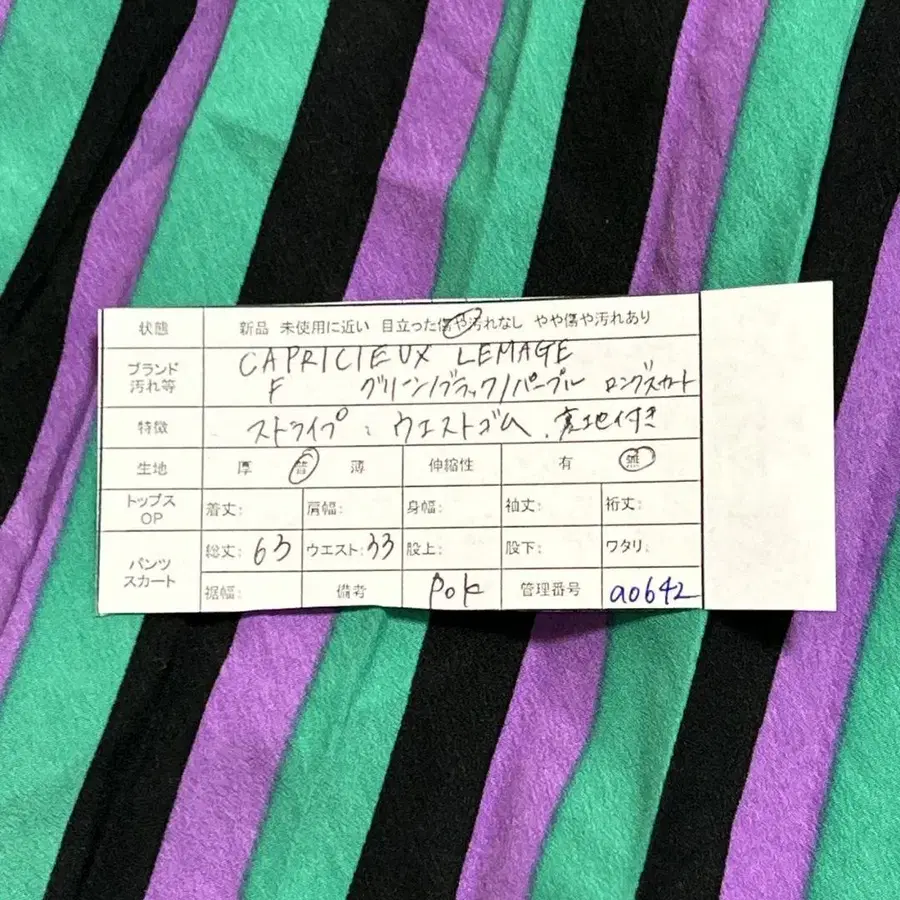 状態 新品 未使用に近い 目立った傷や汚れなし やや傷や汚れあり
ブランド CAPRICIEUX LEMAGE
汚れ等 F グリーン/ブラック/パープル ロングスカート
特徴 ストライプ、ウエストゴム、裏地付き
生地 厚 普 薄 伸縮性 有 無
トップス OP 着丈: 肩幅: 身幅: 袖丈: 裄丈:
パンツ スカート 総丈: 63 ウエスト: 33 股上: 股下: ワタリ:
裾幅: 備考 Pok 管理番号 a0642